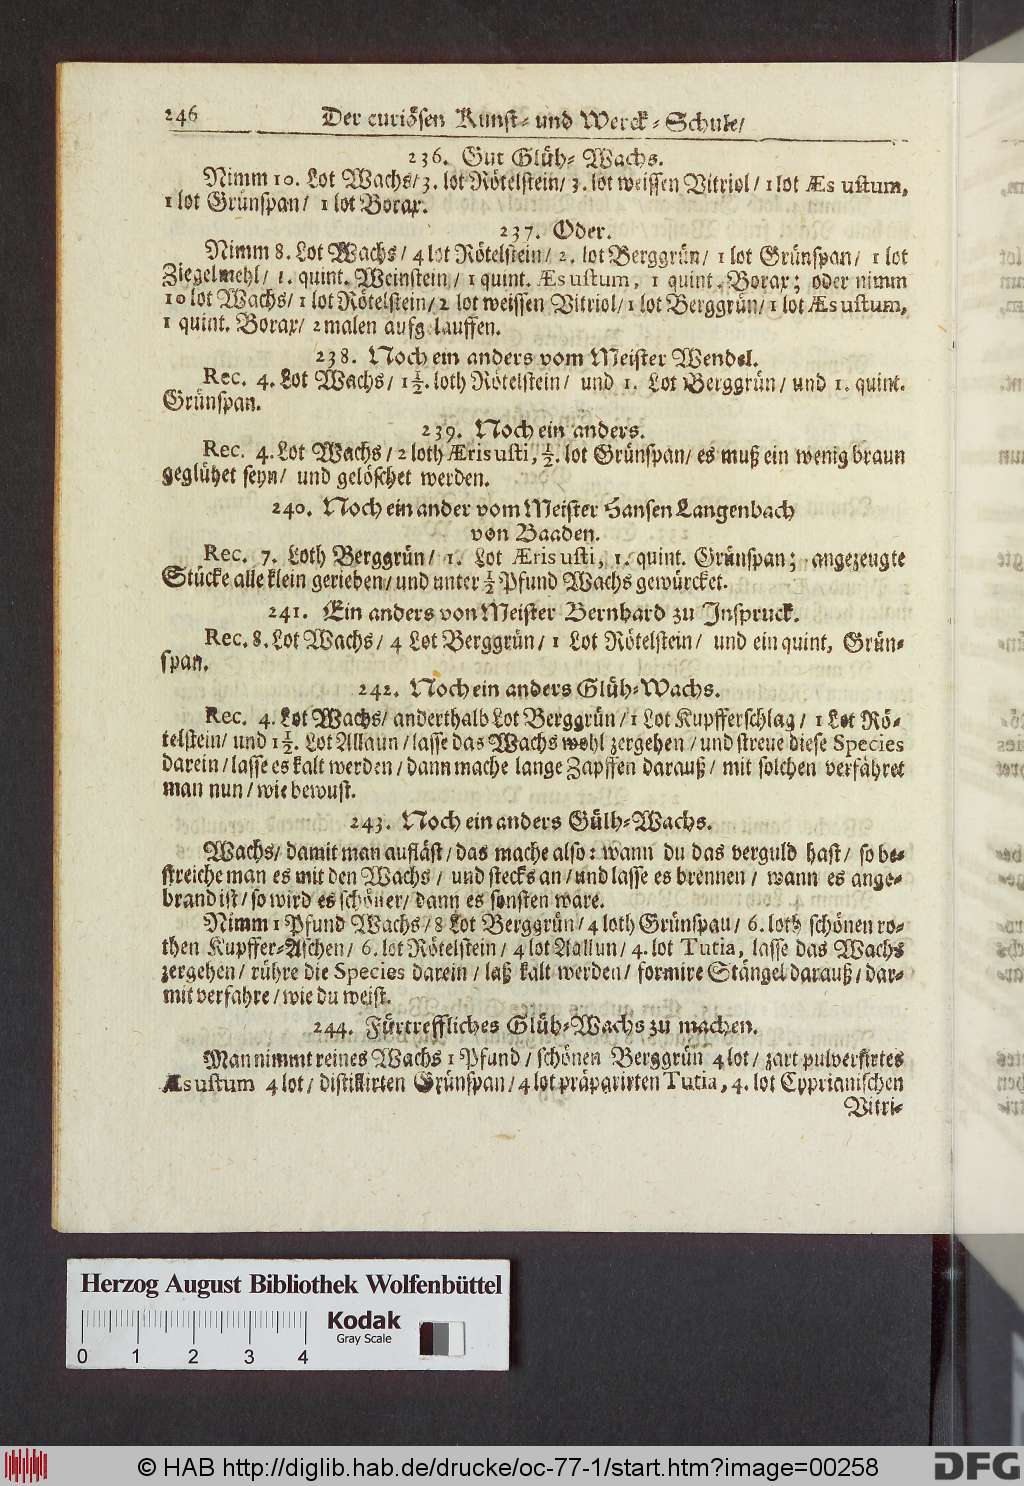 246 Der curiösen Kunst- und Werck-Schule/
236. Gut Glüh-Wachs.
Nimm 10. Lot Wachs/ 3. lot Rötelstein/ 3. lot weissen Vitriol/ 1 lot Æs ustum,
1 lot Grünspan/ 1 lot Borax.
237. Oder.
Nimm 8. Lot Wachs/ 4 lot Rötelstein/ 2. lot Berggrün/ 1 lot Grünspan/ 1 lot
Ziegelmehl/ 1. quint. Weinstein/ 1 quint. Æs ustum, 1 quint. Borax; oder nimm
10 lot Wachs/ 1 lot Rötelstein/ 2 lot weissen Vitriol/ 1 lot Berggrün/ 1 lot Æs ustum,
1 quint. Borax/ 2 malen aufgelauffen.
238. Noch ein anders vom Meister Wendel.
Rec. 4. Lot Wachs/ 1½. loth Rötelstein/ und 1. Lot Berggrün/ und 1. quint.
Grünspan.
239. Noch ein anders.
Rec. 4. Lot Wachs/ 2 loth Æris usti, ½. lot Grünspan/ es muß ein wenig braun
geglühet seyn/ und gelöschet werden.
240. Noch ein ander vom Meister Hansen Langenbach
von Baaden.
Rec. 7. Loth Berggrün/ 1. Lot Æris usti, 1. quint. Grünspan; angezeugte
Stücke alle klein gerieben/ und unter ½ Pfund Wachs gewürcket.
241. Ein anders von Meister Bernhard zu Inspruck.
Rec. 8. Lot Wachs/ 4 Lot Berggrün/ 1 Lot Rötelstein/ und ein quint, Grün-
span.
242. Noch ein anders Glüh-Wachs.
Rec. 4. Lot Wachs/ anderthalb Lot Berggrün/ 1 Lot Kupfferschlag/ 1 Lot Rö-
telstein/ und 1½. Lot Allaun/ lasse das Wachs wohl zergehen/ und streue diese Species
darein/ lasse es kalt werden/ dann mache lange Zapffen darauß/ mit solchen verfähret
man nun/ wie bewust.
243. Noch ein anders Gülh-Wachs.
Wachs/ damit man aufläst/ das mache also: wann du das verguld hast/ so be-
streiche man es mit den Wachs/ und stecks an/ und lasse es brennen/ wann es ange-
brand ist/ so wird es schöner/ dann es sonsten wäre.
Nimm 1 Pfund Wachs/ 8 Lot Berggrün/ 4 loth Grünspan/ 6. loth schönen ro-
then Kupffer-Aschen/ 6. lot Rötelstein/ 4 lot Aallun/ 4. lot Tutia, lasse das Wachs
zergehen/ rühre die Species darein/ laß kalt werden/ formire Stängel darauß/ dar-
mit verfahre/ wie du weist.
244. Fürtreffliches Glüh-Wachs zu machen.
Man nimmt reines Wachs 1 Pfund/ schönen Berggrün 4 lot/ zart pulverisirtes
Æs ustum 4 lot/ distillirten Grünspan/ 4 lot präparirten Tutia, 4. lot Cyprianischen
Vitri-
Herzog August Bibliothek Wolfenbüttel
Kodak
Gray Scale
0 1 2 3 4
© HAB http://diglib.hab.de/drucke/oc-77-1/start.htm?image=00258
DFG